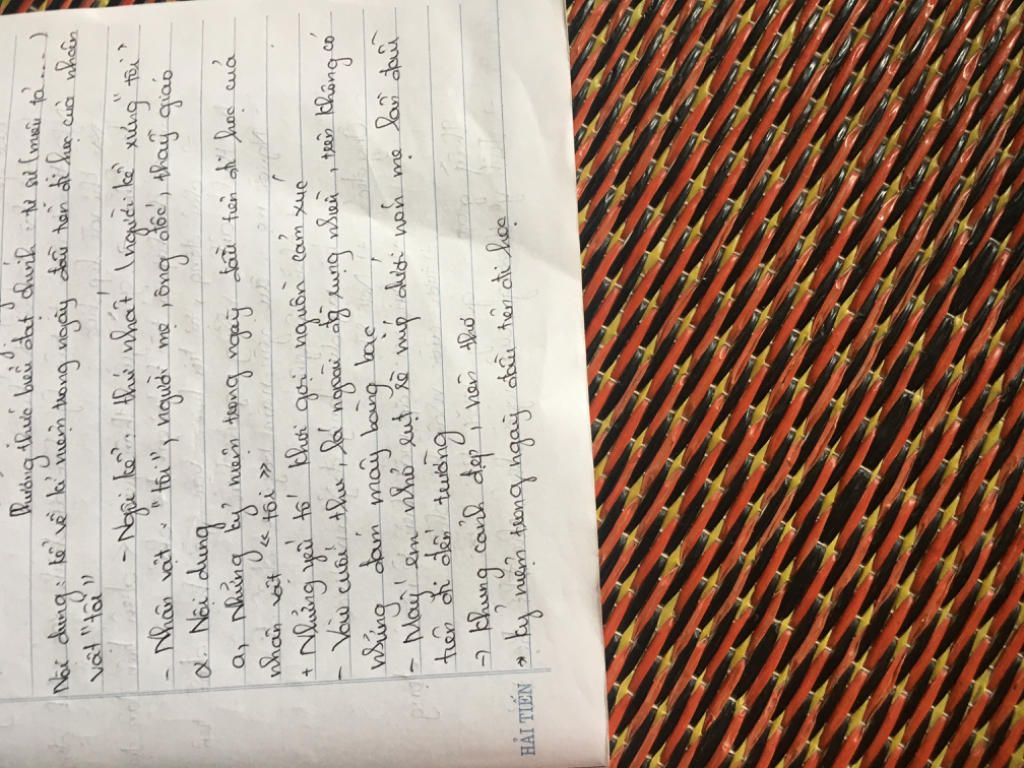 Phương thức biểu đạt chính: tự sự (miêu tả.....)
Nội dung: kể về kỉ niệm trong ngày đầu tiên đi học của nhân
vật "tôi"
- Ngôi kể: thứ nhất (người kể xưng "tôi"
- Nhân vật: "tôi", người mẹ, ông đốc, thầy giáo
2. Nội dung
a, Những kỷ niệm trong ngày đầu tiên đi học của
nhân vật «tôi»
+ Những yếu tố khơi gợi nguồn cảm xúc
- Vào cuối thu, lá ngoài đg rụng nhiều, trên không có
những đám mây bàng bạc
- Mấy em nhỏ rụt rè núp dưới nón mẹ lần đầu
tiên đi đến trường
-> Khung cảnh đẹp, nên thơ
* Kỷ niệm trong ngày đầu tiên đi học
HẢI TIẾN